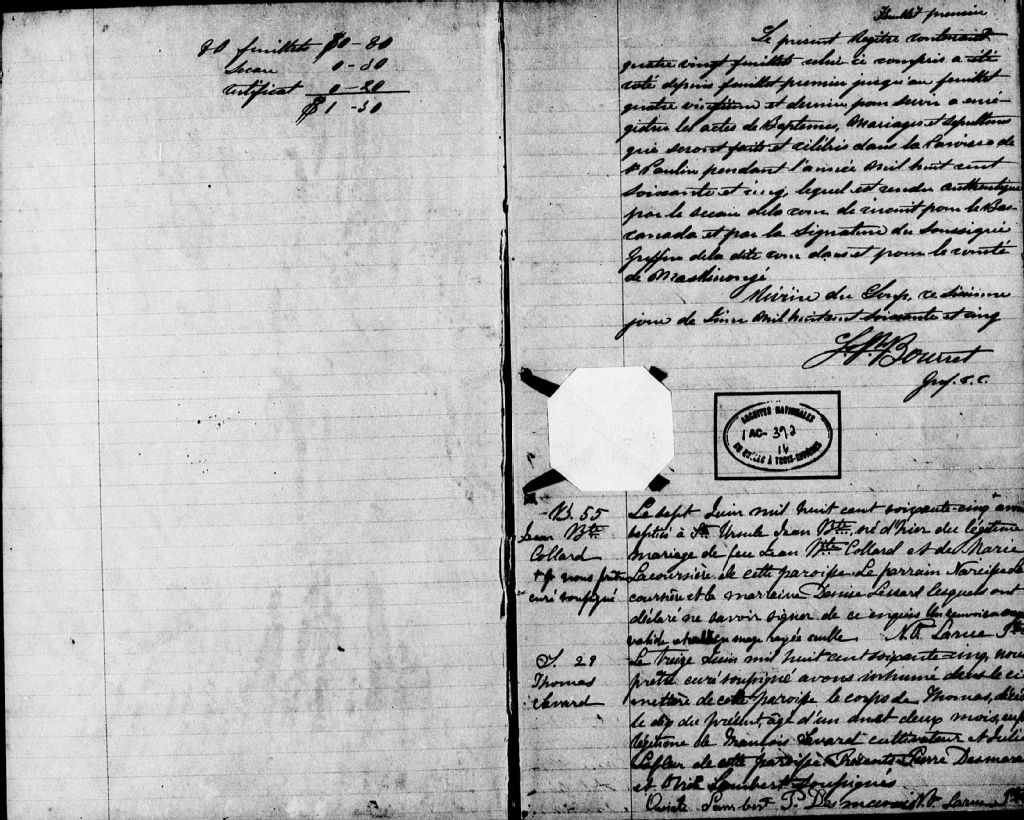 80 feuillets $0-80
Sceau 0-30
Certificat 0-20
$1-30
Feuillet premier
Le present Registre contenant
quatre vingt feuillets celui ci compris a été
coté depuis feuillet premier jusqu'au feuillet
quatre vingtième et dernier, pour servir a enré-
gistrer les actes de Baptemes, Mariages et sepultures
qui seront faits et célébrés dans la Paroisse de
St Paulin pendant l'année Mil huit cent
soixante et cinq, lequel est rendu authentique
par le sceau de la cour de circuit pour le Bas-
canada et par la signature du Soussigné
Greffier de la dite cour dans et pour le comté
de Maskinongé
Rivière du Loup, ce sixième
jour de Juin Mil huit cent soixante et cinq
Bourret
Gref. C. C.
ARCHIVES NATIONALES
1 AC- 392
16
DU QUÉBEC À TROIS-RIVIÈRES
B. 55
Jean Bte
Collard
nous prêtre
curé soussigné
Le sept Juin mil huit cent soixante-cinq avons
baptisé à Ste Ursule Jean Bte né d'hier du légitime
mariage de feu Jean Bte Collard et de Marie
Lacoursière de cette paroisse. Le parrain Narcisse La
coursière et la marraine Denise Lessard lesquels ont
déclaré ne savoir signer de ce enquis Un renvoi en marge
valide et rayée nulle N. T. Larue Ptre
S. 29
Thomas
Savard
Le treize Juin mil huit cent soixante-cinq, nous
prêtre curé soussigné avons inhumé dans le ci
metière de cette paroisse le corps de Thomas, décédé
le dix du présent, âgé d'un an et deux mois, enfant
légitime de François Savard cultivateur et Julie
Lefler de cette paroisse. Présents Pierre Desmarais
et Ovide Lambert soussignés
Ovide Lambert P. Desmarais N. T. Larue Ptre